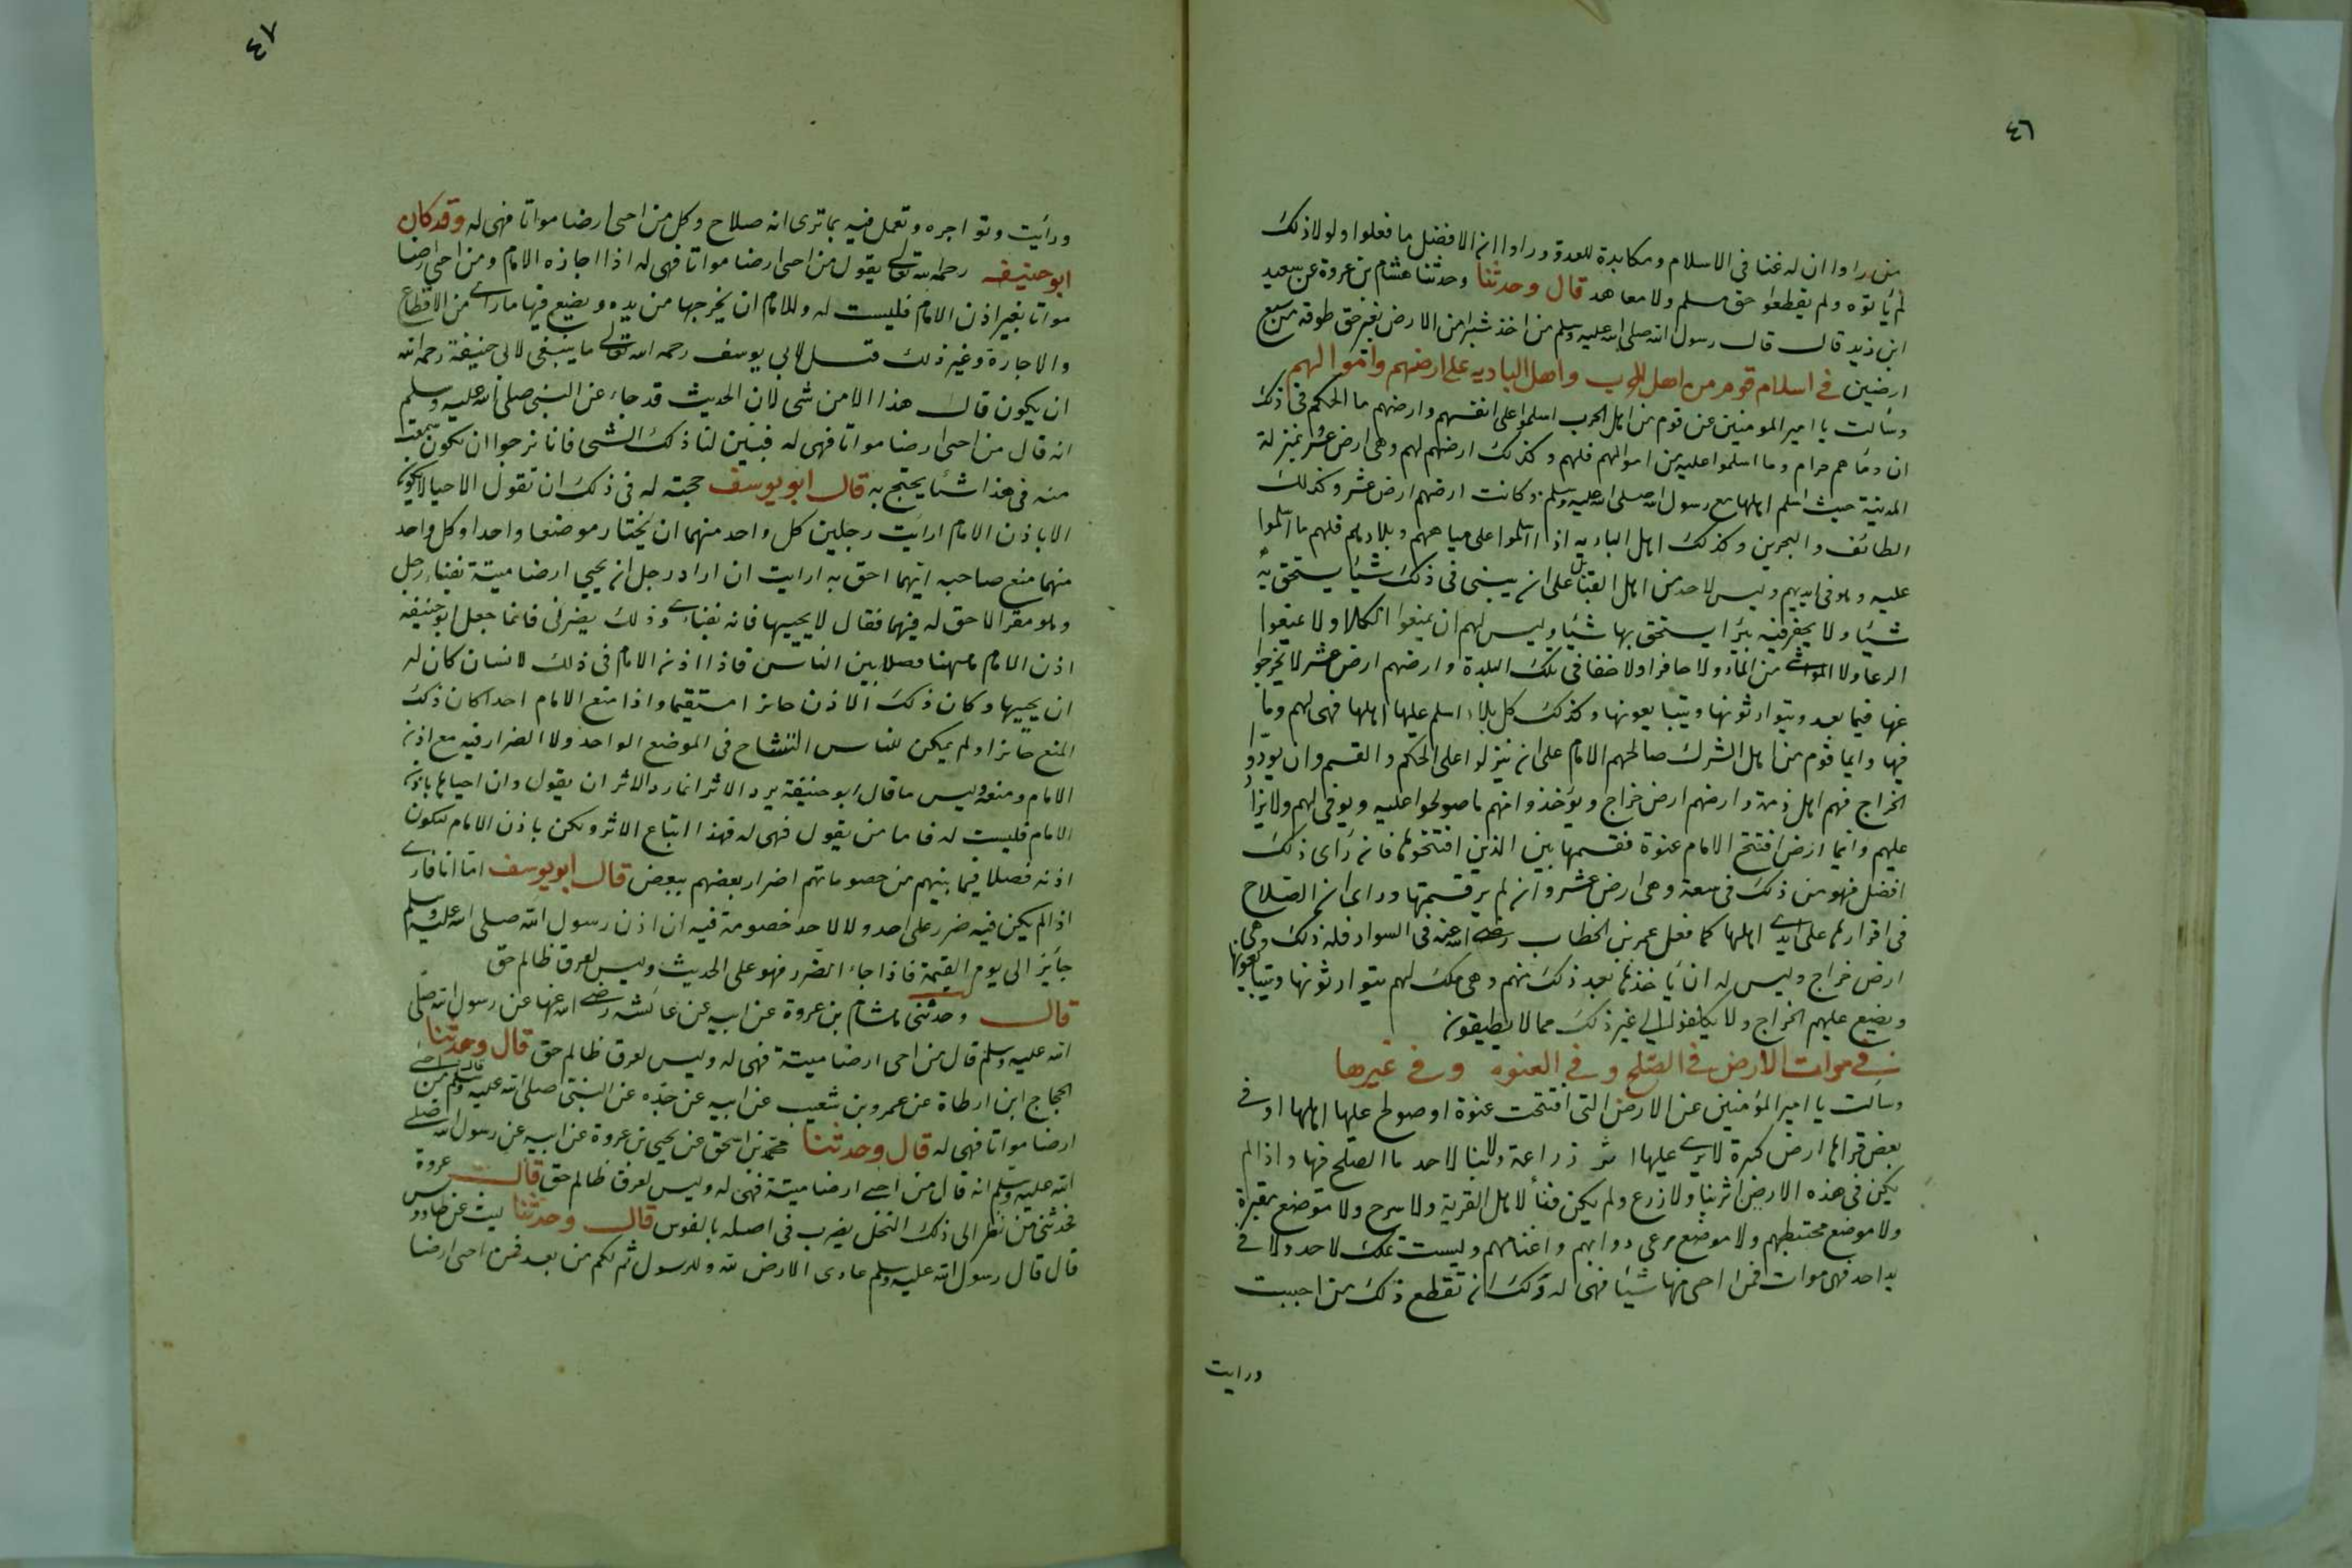 ٤٦
من راوا ان له غنا فى الاسلام ومكابدة للعدو وراوا ان الافضل ما فعلوا ولولا ذلك
لم ياتوه ولم يقطعوا حق مسلم ولا معاهد قال وحدثنا وحدثنا هشام بن عروة عن سعيد
ابن زيد قال قال رسول الله صلى الله عليه وسلم من اخذ شبرا من الارض بغير حق طوقه من سبع
ارضين فى اسلام قوم من اهل الحرب واهل الباديه على ارضهم واموالهم
وسالت يا امير المومنين عن قوم من اهل الحرب اسلموا على انفسهم وارضهم ما الحكم فى ذلك
ان دماهم حرام وما اسلموا عليه من اموالهم فلهم وكذلك ارضهم لهم وهى ارض عشر بمنزلة
المدينة حيث اسلم اهلها مع رسول الله صلى الله عليه وسلم وكانت ارضهم ارض عشر وكذلك
الطائف والبحرين وكذلك اهل الباديه اذا اسلموا على مياههم وبلادهم فلهم ما اسلموا
عليه وهو فى ايديهم وليس لاحد من اهل القبائل على ان يبنى فى ذلك شيئا يستحق به
شيئا ولا يحفر فيه بئرا يستحق بها شيئا وليس لهم ان يمنعوا الكلا ولا يمنعوا
الرعا ولا المواشى من الماء ولا حافرا ولا خفا فى تلك البلدة وارضهم ارض عشر لا يخرجوا
عنها فيما بعد ويتوارثونها ويتبايعونها وكذلك كل بلاد اسلم عليها اهلها فهى لهم وما
فيها وايما قوم من اهل الشرك صالحهم الامام على ان ينزلوا على الحكم والقسم وان يودوا
الخراج فهم اهل ذمة وارضهم ارض خراج ويؤخذوا منهم ما صولحوا عليه ويوفى لهم ولا يزاد
عليهم وايما ارض افتتح الامام عنوة فقسمها بين الذين افتتحوها فان راى ذلك
افضل فهو من ذلك فى سعة وهى ارض عشر وان لم ير قسمتها وراى ان الصلاح
فى اقرارها على ايدى اهلها كما فعل عمر بن الخطاب رضى الله عنه فى السواد فله ذلك وهى
ارض خراج وليس له ان ياخذها بعد ذلك منهم وهى ملك لهم يتوارثونها ويتبايعونها
ويضع عليهم الخراج ولا يكلفوا الى غير ذلك مما لا يطيقون
فى موات الارض فى الصلح وفى العنوه وفى غيرها
وسالت يا امير المؤمنين عن الارض التى افتتحت عنوة او صولح عليها اهلها او فى
بعض قراها ارض كثيرة لا يرى عليها اثر زراعة ولا بنا لاحد ما الصلح فيها واذا لم
يكن فى هذه الارض اثر بنا ولا زرع ولم يكن فنأ لاهل القرية ولا مسرح ولا موضع مقبرة
ولا موضع محتطبهم ولا موضع مرعى دوابهم واغنامهم وليست ملك لاحد ولا فى
يد احد فهى موات فمن احى منها شيئا فهى له ولك ان تقطع ذلك من احببت
ورايت
٤٧
ورايت وتواجره وتعمل فيه بما ترى انه صلاح وكل من احى ارضا مواتا فهى له وقد كان
ابو حنيفه رحمه الله تعالى يقول من احى ارضا مواتا فهى له اذا اجازه الامام ومن احى ارضا
مواتا بغير اذن الامام فليست له وللامام ان يخرجها من يده ويضع فيها ما راى من الاقطاع
والاجارة وغير ذلك قيل لابى يوسف رحمه الله تعالى ما ينبغى لابى حنيفة رحمه الله
ان يكون قال هذا الا من شى لان الحديث قد جاء عن النبى صلى الله عليه وسلم
انه قال من احى ارضا مواتا فهى له فبين لنا ذلك الشى فانا نرجوا ان يكون سمعت
منه فى هذا شيئا يحتج به قال ابو يوسف حجته له فى ذلك ان تقول الاحيا لا يكون
الا باذن الامام ارايت رجلين كل واحد منهما ان يختار موضعا واحدا وكل واحد
منهما منع صاحبه ايهما احق به ارايت ان اراد رجل ان يحيى ارضا ميتة بفناء رجل
وهو مقر الا حق له فيها فقال لا يحييها فانه بفناءى وذلك يضرنى فانما جعل ابو حنيفه
اذن الامام هاهنا فصلا بين الناس فاذا اذن الامام فى ذلك لانسان كان له
ان يحييها وكان ذلك الاذن جائزا مستقيما واذا منع الامام احدا كان ذلك
المنع جائزا ولم يكن للناس التشاح فى الموضع الواحد ولا الضرار فيه مع اذن
الامام ومنعه وليس ما قال ابو حنيفة يرد الاثر انما رد الاثر ان يقول وان احياها باذن
الامام فليست له فاما من يقول فهى له فهذا اتباع الاثر ولكن باذن الامام ليكون
اذنه فصلا فيما بينهم من خصوماتهم اضرار بعضهم ببعض قال ابو يوسف اما انا فارى
اذا لم يكن فيه ضرر على احد ولا لاحد خصومة فيه ان اذن رسول الله صلى الله عليه وسلم
جايز الى يوم القيمة فاذا جاء الضرر فهو على الحديث وليس لعرق ظالم حق
قال وحدثنى هشام بن عروة عن ابيه عن عائشه رضى الله عنها عن رسول الله صلى
الله عليه وسلم قال من احى ارضا ميتة فهى له وليس لعرق ظالم حق قال وحدثنا
الحجاج ابن ارطاة عن عمرو بن شعيب عن ابيه عن جده عن النبى صلى الله عليه وسلم قال من احى
ارضا مواتا فهى له قال وحدثنا محمد بن اسحق عن يحيى بن عروة عن ابيه عن رسول الله صلى
الله عليه وسلم انه قال من احى ارضا ميتة فهى له وليس لعرق ظالم حق قال عروة
فحدثنى من نظر الى ذلك النخل يضرب فى اصله بالفوس قال وحدثنا ليث عن طاووس
قال قال رسول الله عليه وسلم عادى الارض لله وللرسول ثم لكم من بعد فمن احى ارضا